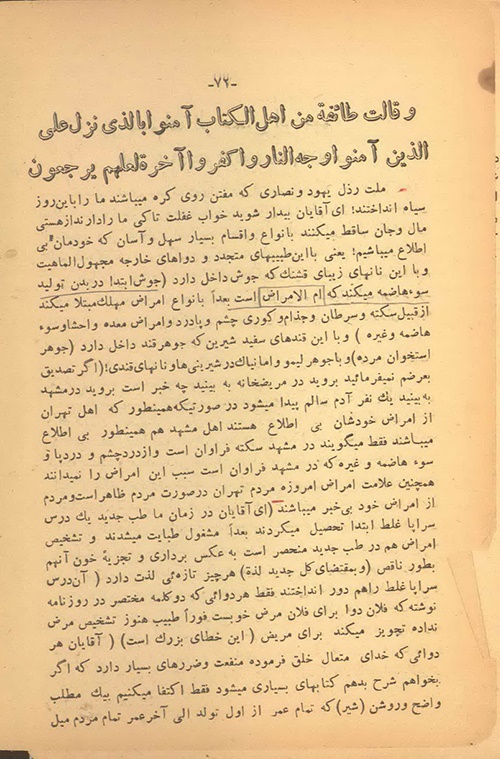 -۷۲-
و قالت طائفة من اهل الکتاب آمنوا بالذی نزل علی
الذین آمنوا وجه النار واکفروا آخرة لعلهم یرجعون
ملت رذل یهود و نصاری که مفتن روی کره میباشند ما را باین روز
سیاه انداختند؛ ای آقایان بیدار شوید خواب غفلت تاکی ما را دارند از هستی
مال و جان ساقط میکنند بانواع و اقسام بسیار سهل و آسان که خودمان بی
اطلاع میباشیم؛ یعنی با این طبیبهای متجدد و دواهای خارجه مجهول الماهیت
و با این نانهای زیبای قشنگ که جوش داخل دارد (جوش ابتدا در بدن تولید
سوء هاضمه میکند که ام الامراض است بعداً بانواع امراض مهلک مبتلا میکند
از قبیل سکته و سرطان و جذام و کوری چشم و پادرد و امراض معده و احشاو سوء
هاضمه و غیره ) و با این قندهای سفید شیرین که جوهر قند داخل دارد (جوهر
استخوان مرده) و باجوهر لیمو و امانیاک در شیرینی ها و نانهای قندی؛ (اگر تصدیق
بعرضم نمیفرمائید بروید در مریضخانه به بینید چه خبر است بروید در مشهد
به بینید یك نفر آدم سالم پیدا میشود در صورتیکه همینطور که اهل تهران
از امراض خودشان بی اطلاع هستند اهل مشهد هم همینطور بی اطلاع
میباشند فقط میگویند در مشهد سکته فراوان است و از درد چشم و درد پا و
سوء هاضمه و غیره که در مشهد فراوان است سبب این امراض را نمیدانند
همچنین علامت امراض امروزه مردم تهران در صورت مردم ظاهر است و مردم
از امراض خود بی خبر میباشند (ای آقایان در زمان ما طب جدید یك درس
سراپا غلط ابتدا تحصیل میکردند بعداً مشغول طبابت میشدند و تشخیص
امراض هم در طب جدید منحصر است به عکس برداری و تجزیهٔ خون آنهم
بطور ناقص (و بمقتضای کل جدید لذة) هر چیز تازه ئی لذت دارد ( آن درس
سراپا غلط را هم دور انداختند فقط هر دوائی که دو کلمه مختصر در روزنامه
نوشته که فلان دوا برای فلان مرض خوبست فوراً طبیب هنوز تشخیص مرض
نداده تجویز میکند برای مریض ( این خطای بزرگ است) ( آقایان هر
دوائی که خدای متعال خلق فرموده منفعت و ضررهای بسیار دارد که اگر
بخواهم شرح بدهم کتابهای بسیاری میشود فقط اکتفا میکنیم بیك مطلب
واضح و روشن (شیر) که تمام عمر از اول تولد الی آخر عمر تمام مردم میل